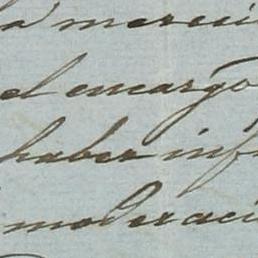 la merci
el encargo
haber inf
moderaci